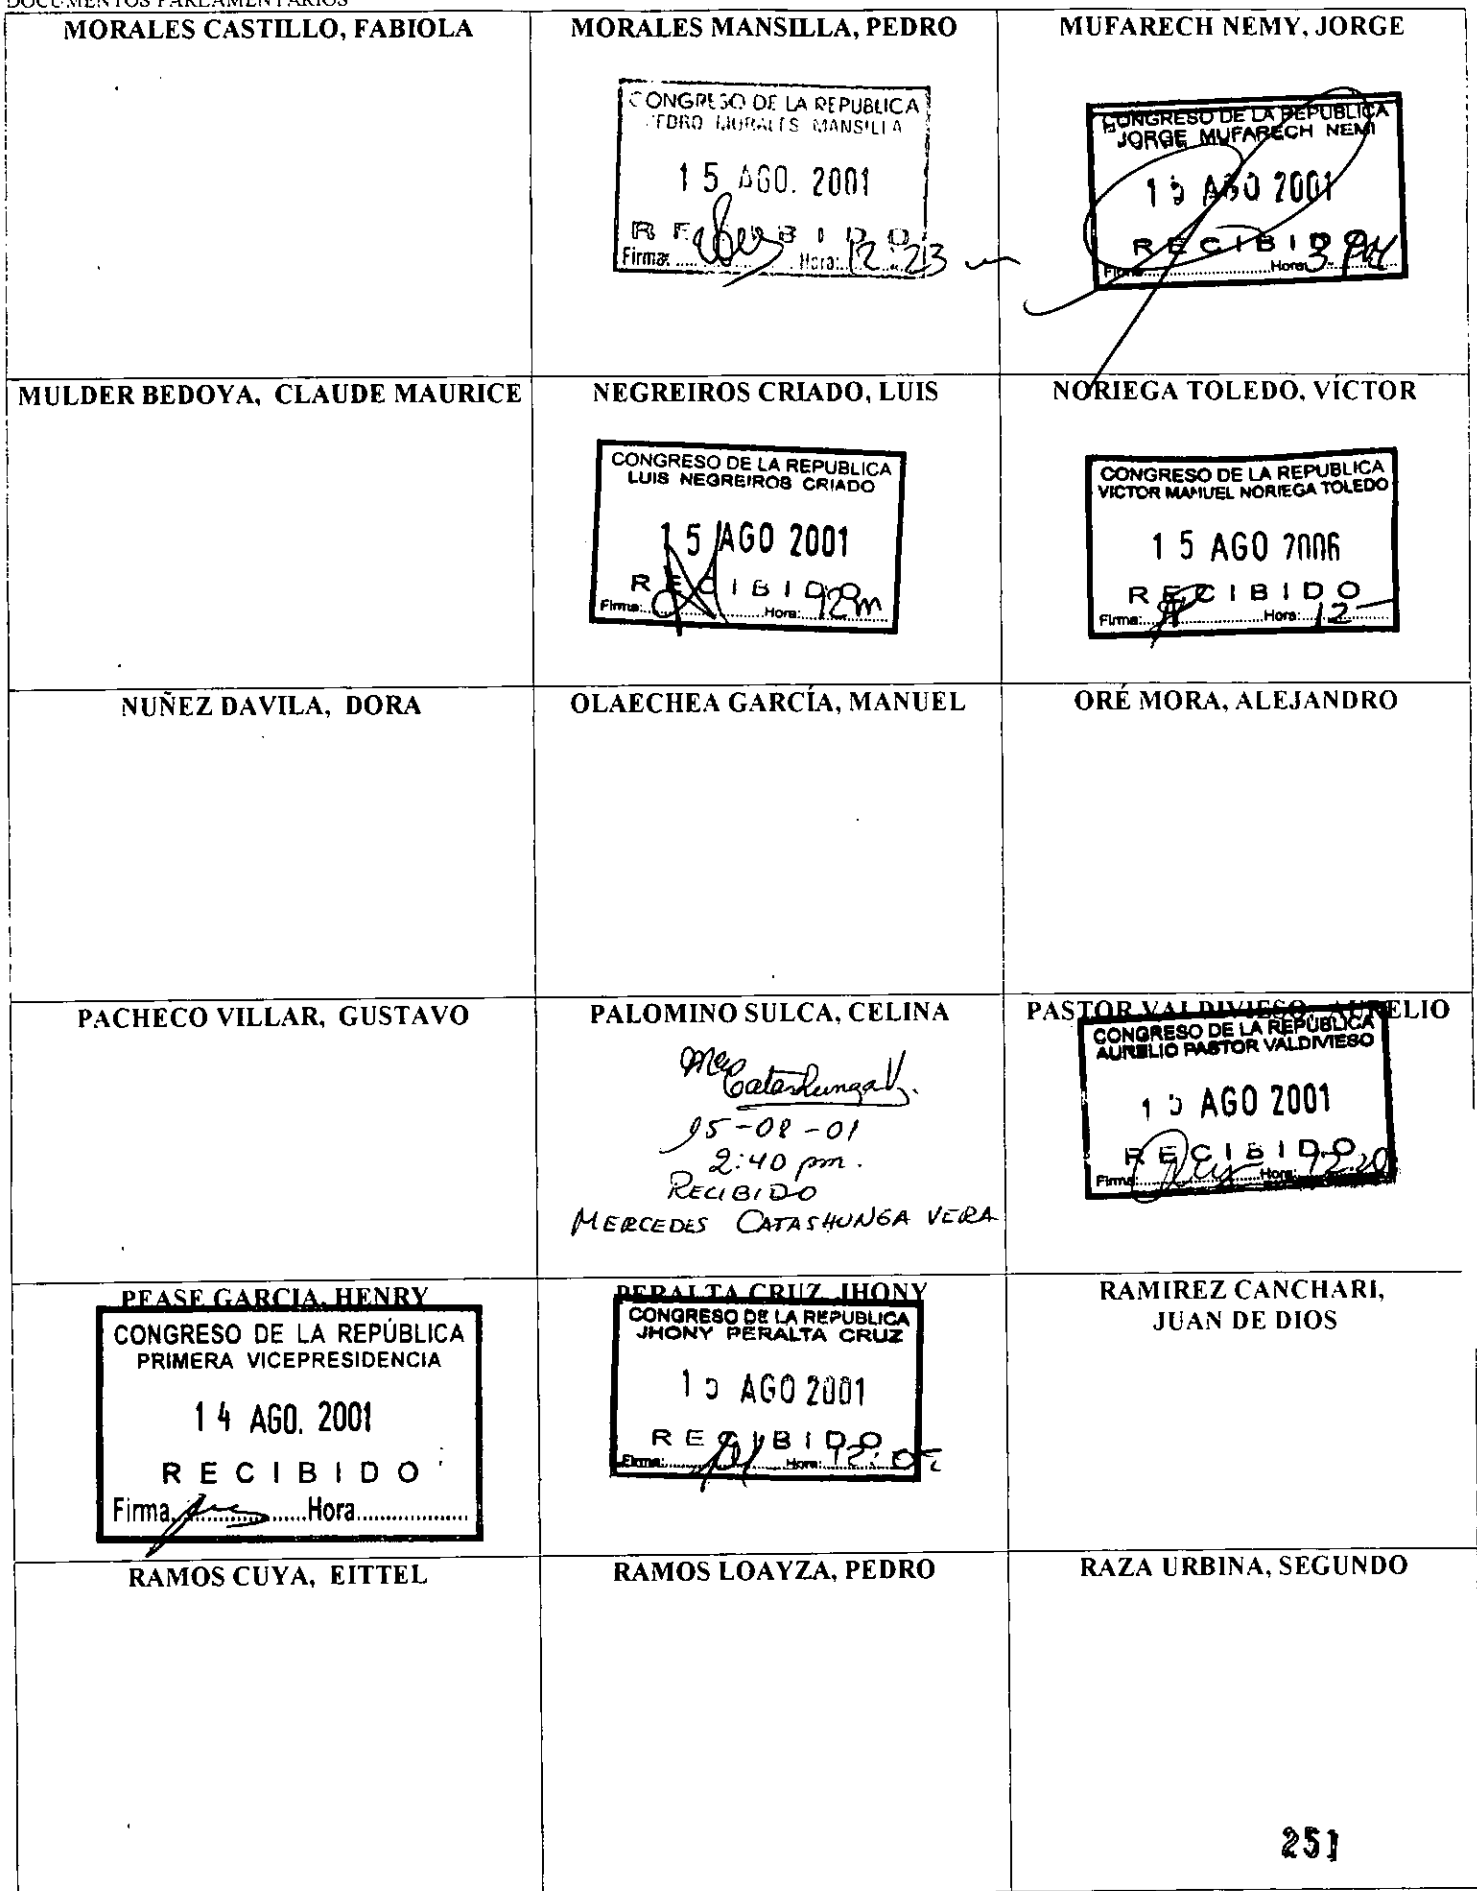 DOCUMENTOS PARLAMENTARIOS
MORALES CASTILLO, FABIOLA
MORALES MANSILLA, PEDRO
CONGRESO DE LA REPUBLICA
PEDRO MORALES MANSILLA
15 AGO. 2001
RECIBIDO
Firma: Hora: 12:23
MUFARECH NEMY, JORGE
CONGRESO DE LA REPUBLICA
JORGE MUFARECH NEMI
15 AGO 2001
RECIBIDO
Firma: Hora: 3 PM
MULDER BEDOYA, CLAUDE MAURICE
NEGREIROS CRIADO, LUIS
CONGRESO DE LA REPUBLICA
LUIS NEGREIROS CRIADO
15 AGO 2001
RECIBIDO
Firma: Hora:
NORIEGA TOLEDO, VÍCTOR
CONGRESO DE LA REPUBLICA
VICTOR MANUEL NORIEGA TOLEDO
15 AGO
RECIBIDO
Firma: Hora: 12
NUÑEZ DAVILA, DORA
OLAECHEA GARCÍA, MANUEL
ORÉ MORA, ALEJANDRO
PACHECO VILLAR, GUSTAVO
PALOMINO SULCA, CELINA
Catashunga V.
15-08-01
2:40 pm.
RECIBIDO
MERCEDES CATASHUNGA VERA
PASTOR VALDIVIESO, AURELIO
CONGRESO DE LA REPÚBLICA
AURELIO PASTOR VALDIVIESO
15 AGO 2001
RECIBIDO
Firma: Hora: 12:20
PEASE GARCIA, HENRY
CONGRESO DE LA REPÚBLICA
PRIMERA VICEPRESIDENCIA
14 AGO. 2001
RECIBIDO
Firma Hora
PERALTA CRUZ, JHONY
CONGRESO DE LA REPUBLICA
JHONY PERALTA CRUZ
15 AGO 2001
RECIBIDO
Firma: Hora: 12:05
RAMIREZ CANCHARI,
JUAN DE DIOS
RAMOS CUYA, EITTEL
RAMOS LOAYZA, PEDRO
RAZA URBINA, SEGUNDO
251